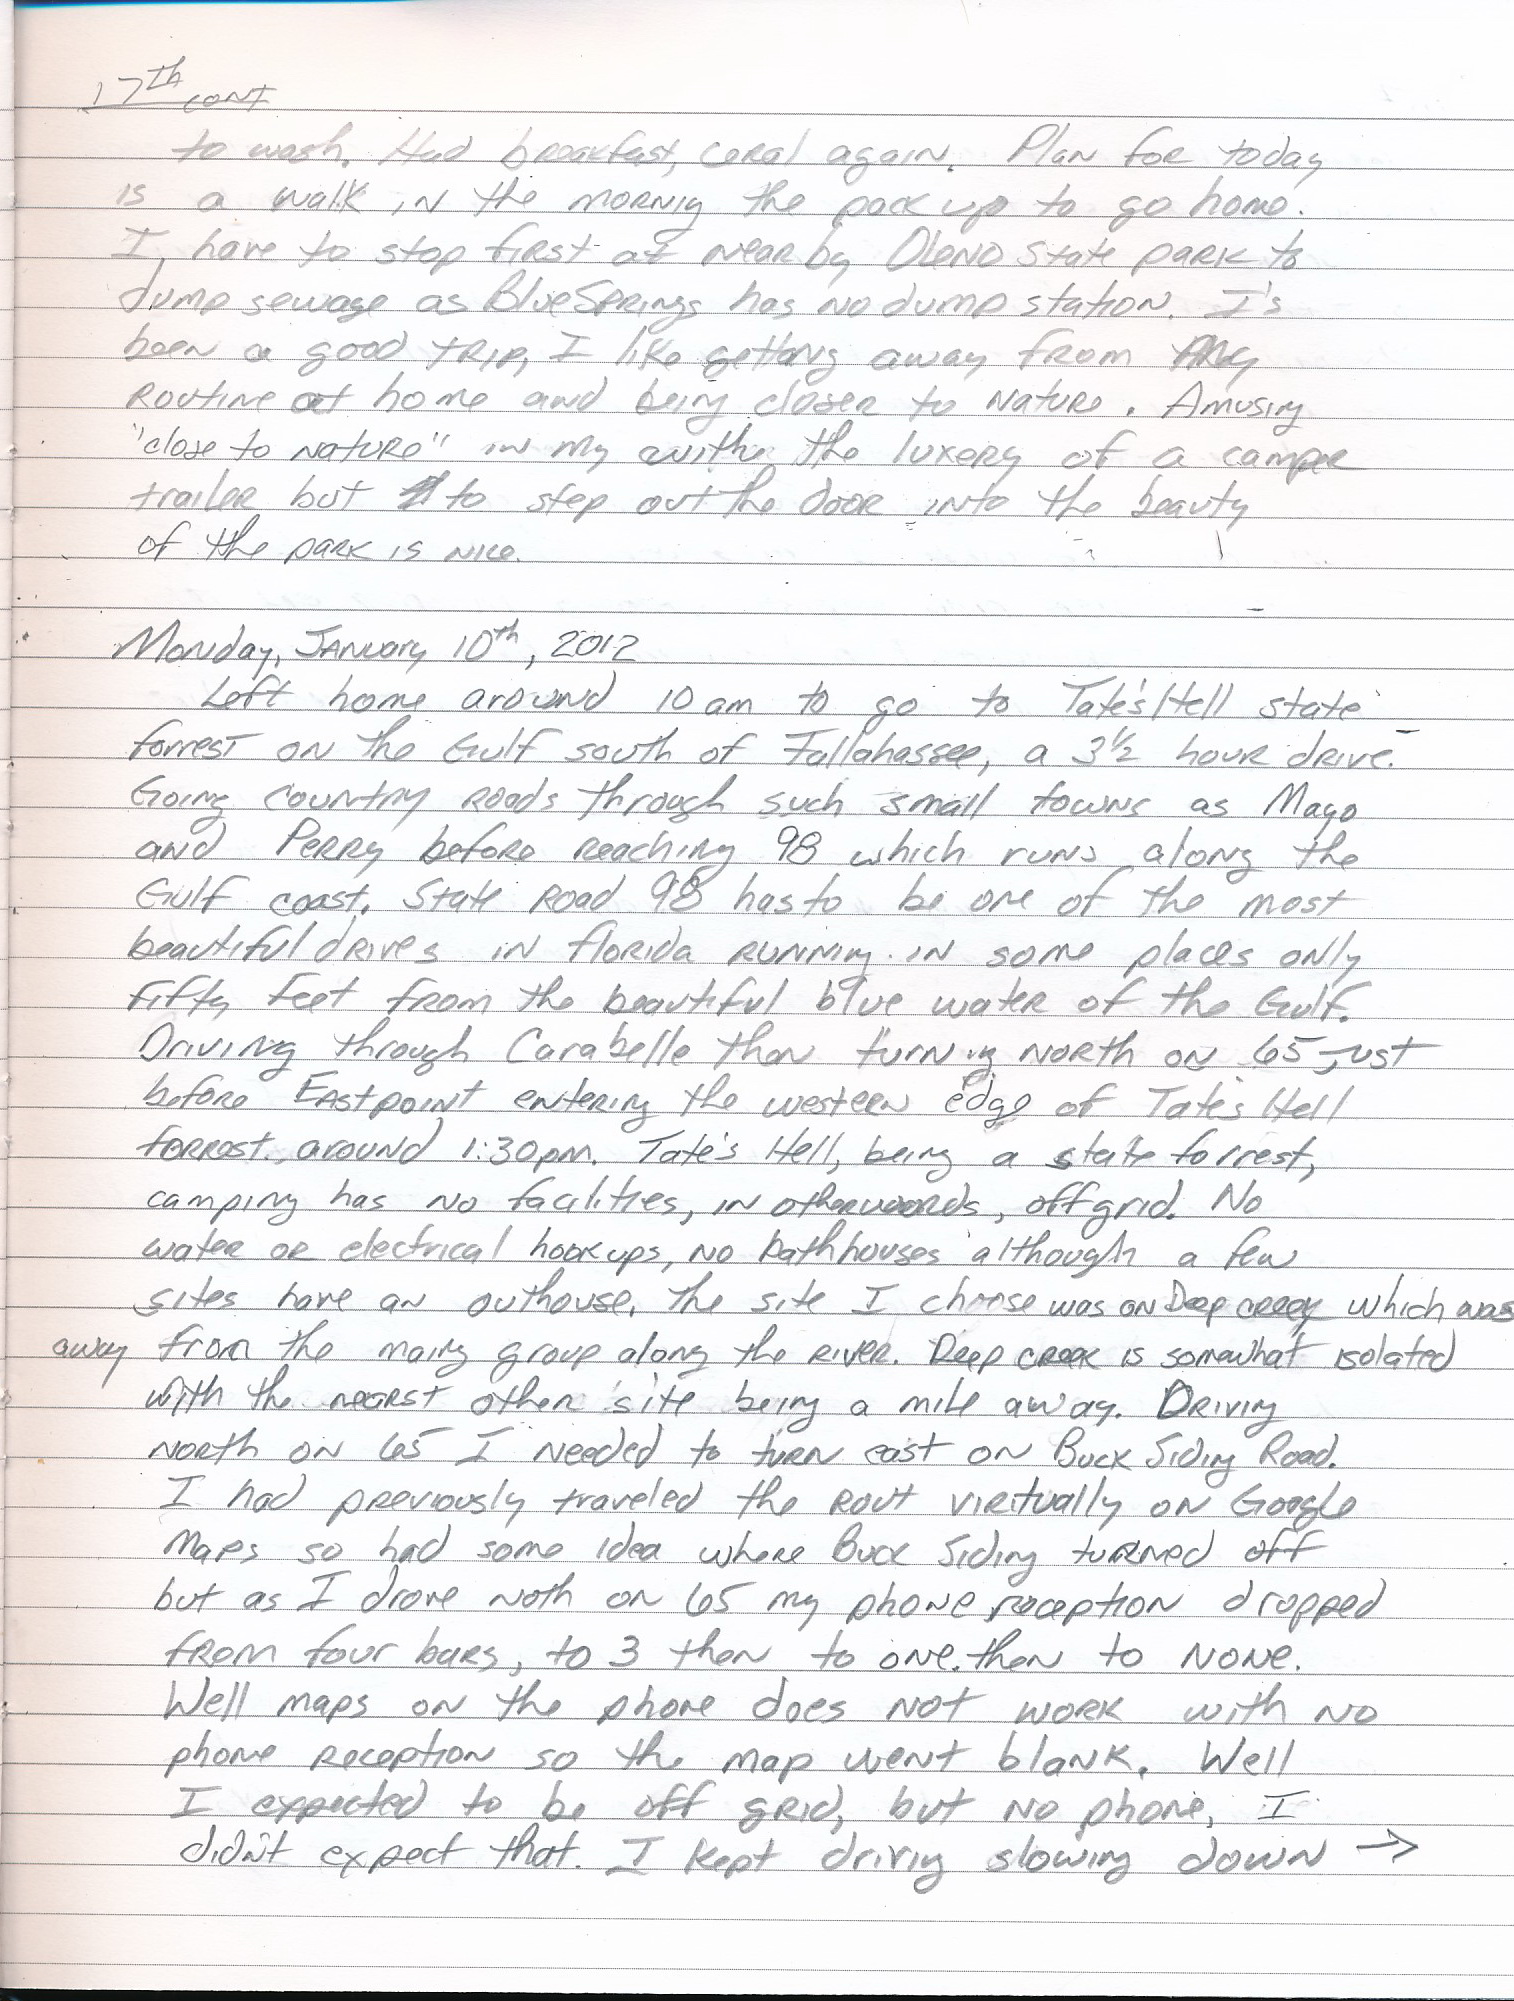 17th cont
to wash. Had breakfast, ceral again. Plan for today
is a walk in the mornig the pack up to go home.
I have to stop first at near by Oleno State park to
dump sewage as Blue Springs has no dump station. I's
been a good trip, I like getting away from my
routine at home and being closer to nature. Amusing
"close to nature" in my the luxery of a camper
trailer but to step out the door into the beauty
of the park is nice.
Monday, January 10th, 2012
Left home around 10 am to go to Tate's Hell state
forrest on the Gulf south of Tallahassee, a 3 1/2 hour drive.
Going country roads through such small towns as Mayo
and Perry before reaching 98 which runs along the
Gulf coast. State Road 98 has to be one of the most
beautiful drives in florida running in some places only
fifty feet from the beautiful blue water of the Gulf.
Driving through Carabelle then turning north on 65 just
before Eastpoint entering the western edge of Tate's Hell
forrest around 1:30pm. Tate's Hell, being a state forrest,
camping has no facilities, in otherwoords, off grid. No
water or electrical hookups, no bathhouses although a few
sites have an outhouse. The site I choose was on Deep creek which was
away from the main group along the river. Deep creek is somewhat isolated
with the nearst other site being a mile away. Driving
north on 65 I needed to turn east on Buck Siding Road.
I had previously traveled the rout viritually on Google
Maps so had some idea where Buck Siding turned off
but as I drove noth on 65 my phone reception dropped
from four bars, to 3 then to one then to none.
Well maps on the phone does not work with no
phone reception so the map went blank. Well
I expected to be off grid, but no phone, I
didn't expect that. I kept driving slowing down →